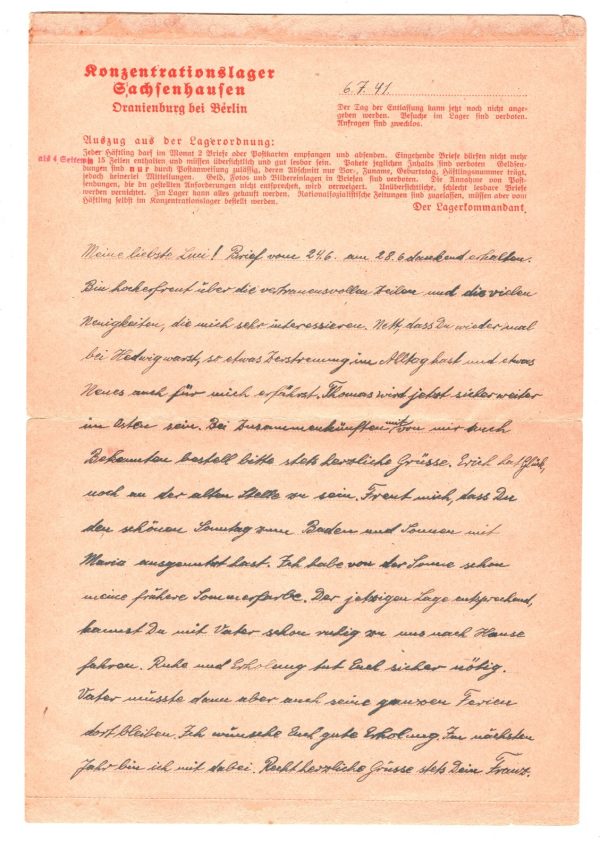 Konzentrationslager
Sachsenhausen
Oranienburg bei Berlin
6.7.41.
Der Tag der Entlassung kann jetzt noch nicht ange-
geben werden. Besuche im Lager sind verboten.
Anfragen sind zwecklos.
Auszug aus der Lagerordnung:
Jeder Häftling darf im Monat 2 Briefe oder Postkarten empfangen und absenden. Eingehende Briefe dürfen nicht mehr
als 4 Seiten à 15 Zeilen enthalten und müssen übersichtlich und gut lesbar sein. Pakete jeglichen Inhalts sind verboten. Geldsen-
dungen sind nur durch Postanweisung zulässig, deren Abschnitt nur Vor-, Zuname, Geburtstag, Häftlingsnummer trägt,
jedoch keinerlei Mitteilungen. Geld, Fotos und Bildereinlagen in Briefen sind verboten. Die Annahme von Post-
sendungen, die den gestellten Anforderungen nicht entsprechen, wird verweigert. Unübersichtliche, schlecht lesbare Briefe
werden vernichtet. Im Lager kann alles gekauft werden. Nationalsozialistische Zeitungen sind zugelassen, müssen aber vom
Häftling selbst im Konzentrationslager bestellt werden.
Der Lagerkommandant
Meine liebste Luci! Brief vom 24.6. am 28.6 dankend erhalten.
Bin hocherfreut über die vertrauensvollen Zeilen und die vielen
Neuigkeiten, die mich sehr interessieren. Nett, dass Du wieder mal
bei Hedwig warst, so etwas Zerstreuung im Alltag hast und etwas
Neues auch für mich erfährst. Thomas wird jetzt sicher weiter
im Osten sein. Bei Zusammenkünften mit von mir auch
Bekannten bestell bitte stets herzliche Grüsse. Erich hat Glück,
noch an der alten Stelle zu sein. Freut mich, dass Du
den schönen Sonntag zum Baden und Sonnen mit
Maria ausgenutzt hast. Ich habe von der Sonne schon
meine frühere Sommerfarbe. Der jetzigen Lage entsprechend,
kannst Du mit Vater schon ruhig zu uns nach Hause
fahren. Ruhe und Erholung tut Euch sicher nötig.
Vater müsste dann aber auch seine ganzen Ferien
dort bleiben. Ich wünsche Euch gute Erholung. Im nächsten
Jahr bin ich mit dabei. Recht herzliche Grüsse stets Dein Franz.